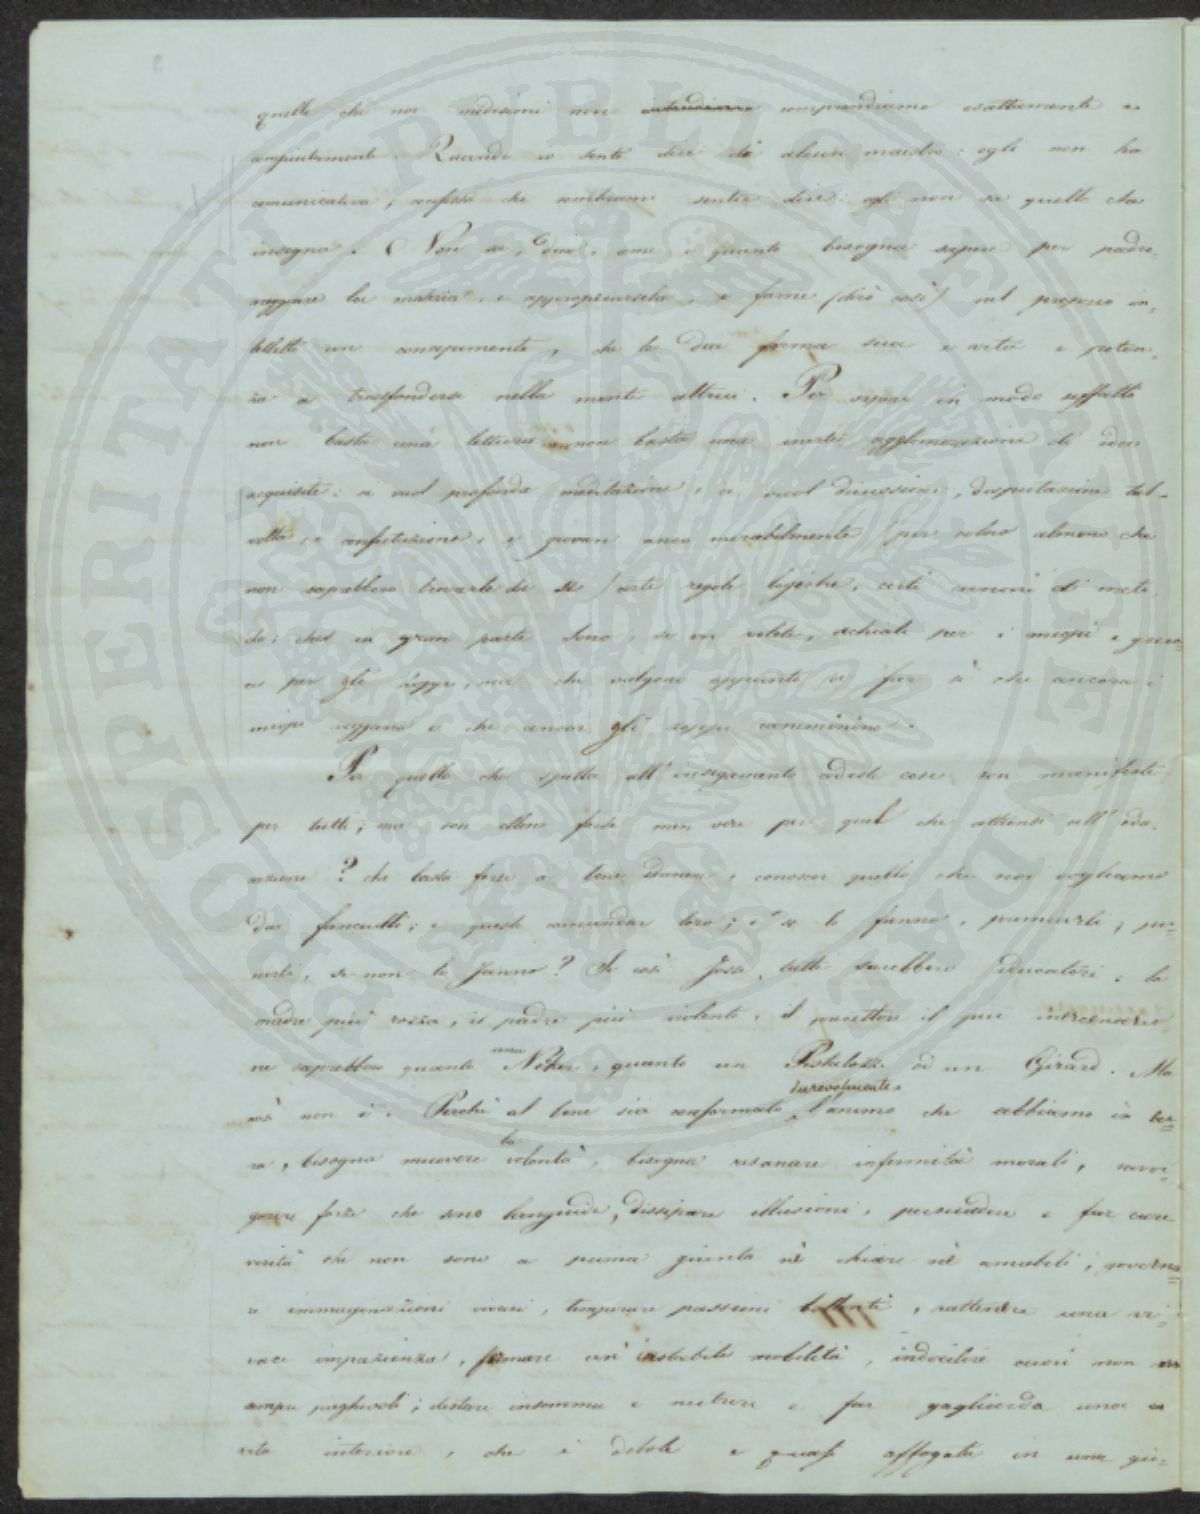 quello che noi medesimi non intendiamo comprendiamo esattamente e
compiutamente. Quando io sento dire di alcun maestro: egli non ha
comunicativa; confesso che sembrami sentir dire: egli non sa quello che
insegna. Non sa, cioè, quanto bisogna sapere per padro-
neggiare la materia, e appropriarsela, e farne (dirò così) nel proprio in-
telletto un concepimento, che le dia forma sua e vita e poten-
za a trasfondersi nella mente altrui. Per sapere in modo siffatto
non basta una lettura, non basta una inerte agglomerazione di idee
acquisite: ci vuol profonda meditazione, ci vuol discussione, disputazione tal-
volta, e confutazione, e giovan anco mirabilmente (per coloro almeno che
non saprebbero trovarle da sé) certe regole logiche, certi canoni di meto-
do; che in gran parte sono, se vi volete, occhiali per i miopi e grucc-
e per gli zoppi, ma che valgono appunto a far sì che ancora i
miopi veggano e che ancor gli zoppi camminino.
Per quello che spetta all'insegnamento codeste cose son manifeste
per tutti; ma son elleno forse men vere per quel che attiensi all'edu-
cazione? che basta forse a bene educare, conoscer quello che noi vogliamo
dai fanciulli; e questo comandar loro; e se lo fanno, premiarli, pu-
nirli, se non lo fanno? Se così fosse, tutti sarebbero educatori: la
madre più rozza, il padre più violento, il precettore il più mercenario
ne saprebbero quanto una Neker, quanto un Pestalozzi od un Girard. Ma
così non è. Perché al bene sia conformato durevolmente l'animo che abbiamo in cu-
ra, bisogna muovere la volontà, bisogna risanare infermità morali, rinvi-
gorire forze che sono languide, dissipare illusioni, persuadere e far care
verità che non sono a prima giunta nè chiare nè amabili, governa-
re immaginazioni vivaci, temperare passioni bollenti, rattenere una vi-
vace impazienza, fermare un'instabile mobilità, indocilire cuori non
sempre pieghevoli; destare insomma e nutrire e far gagliarda una
vita interiore, che è debole e quasi affogata in una gio-
PROSPERITATI PVBLICAE AVGENDAE